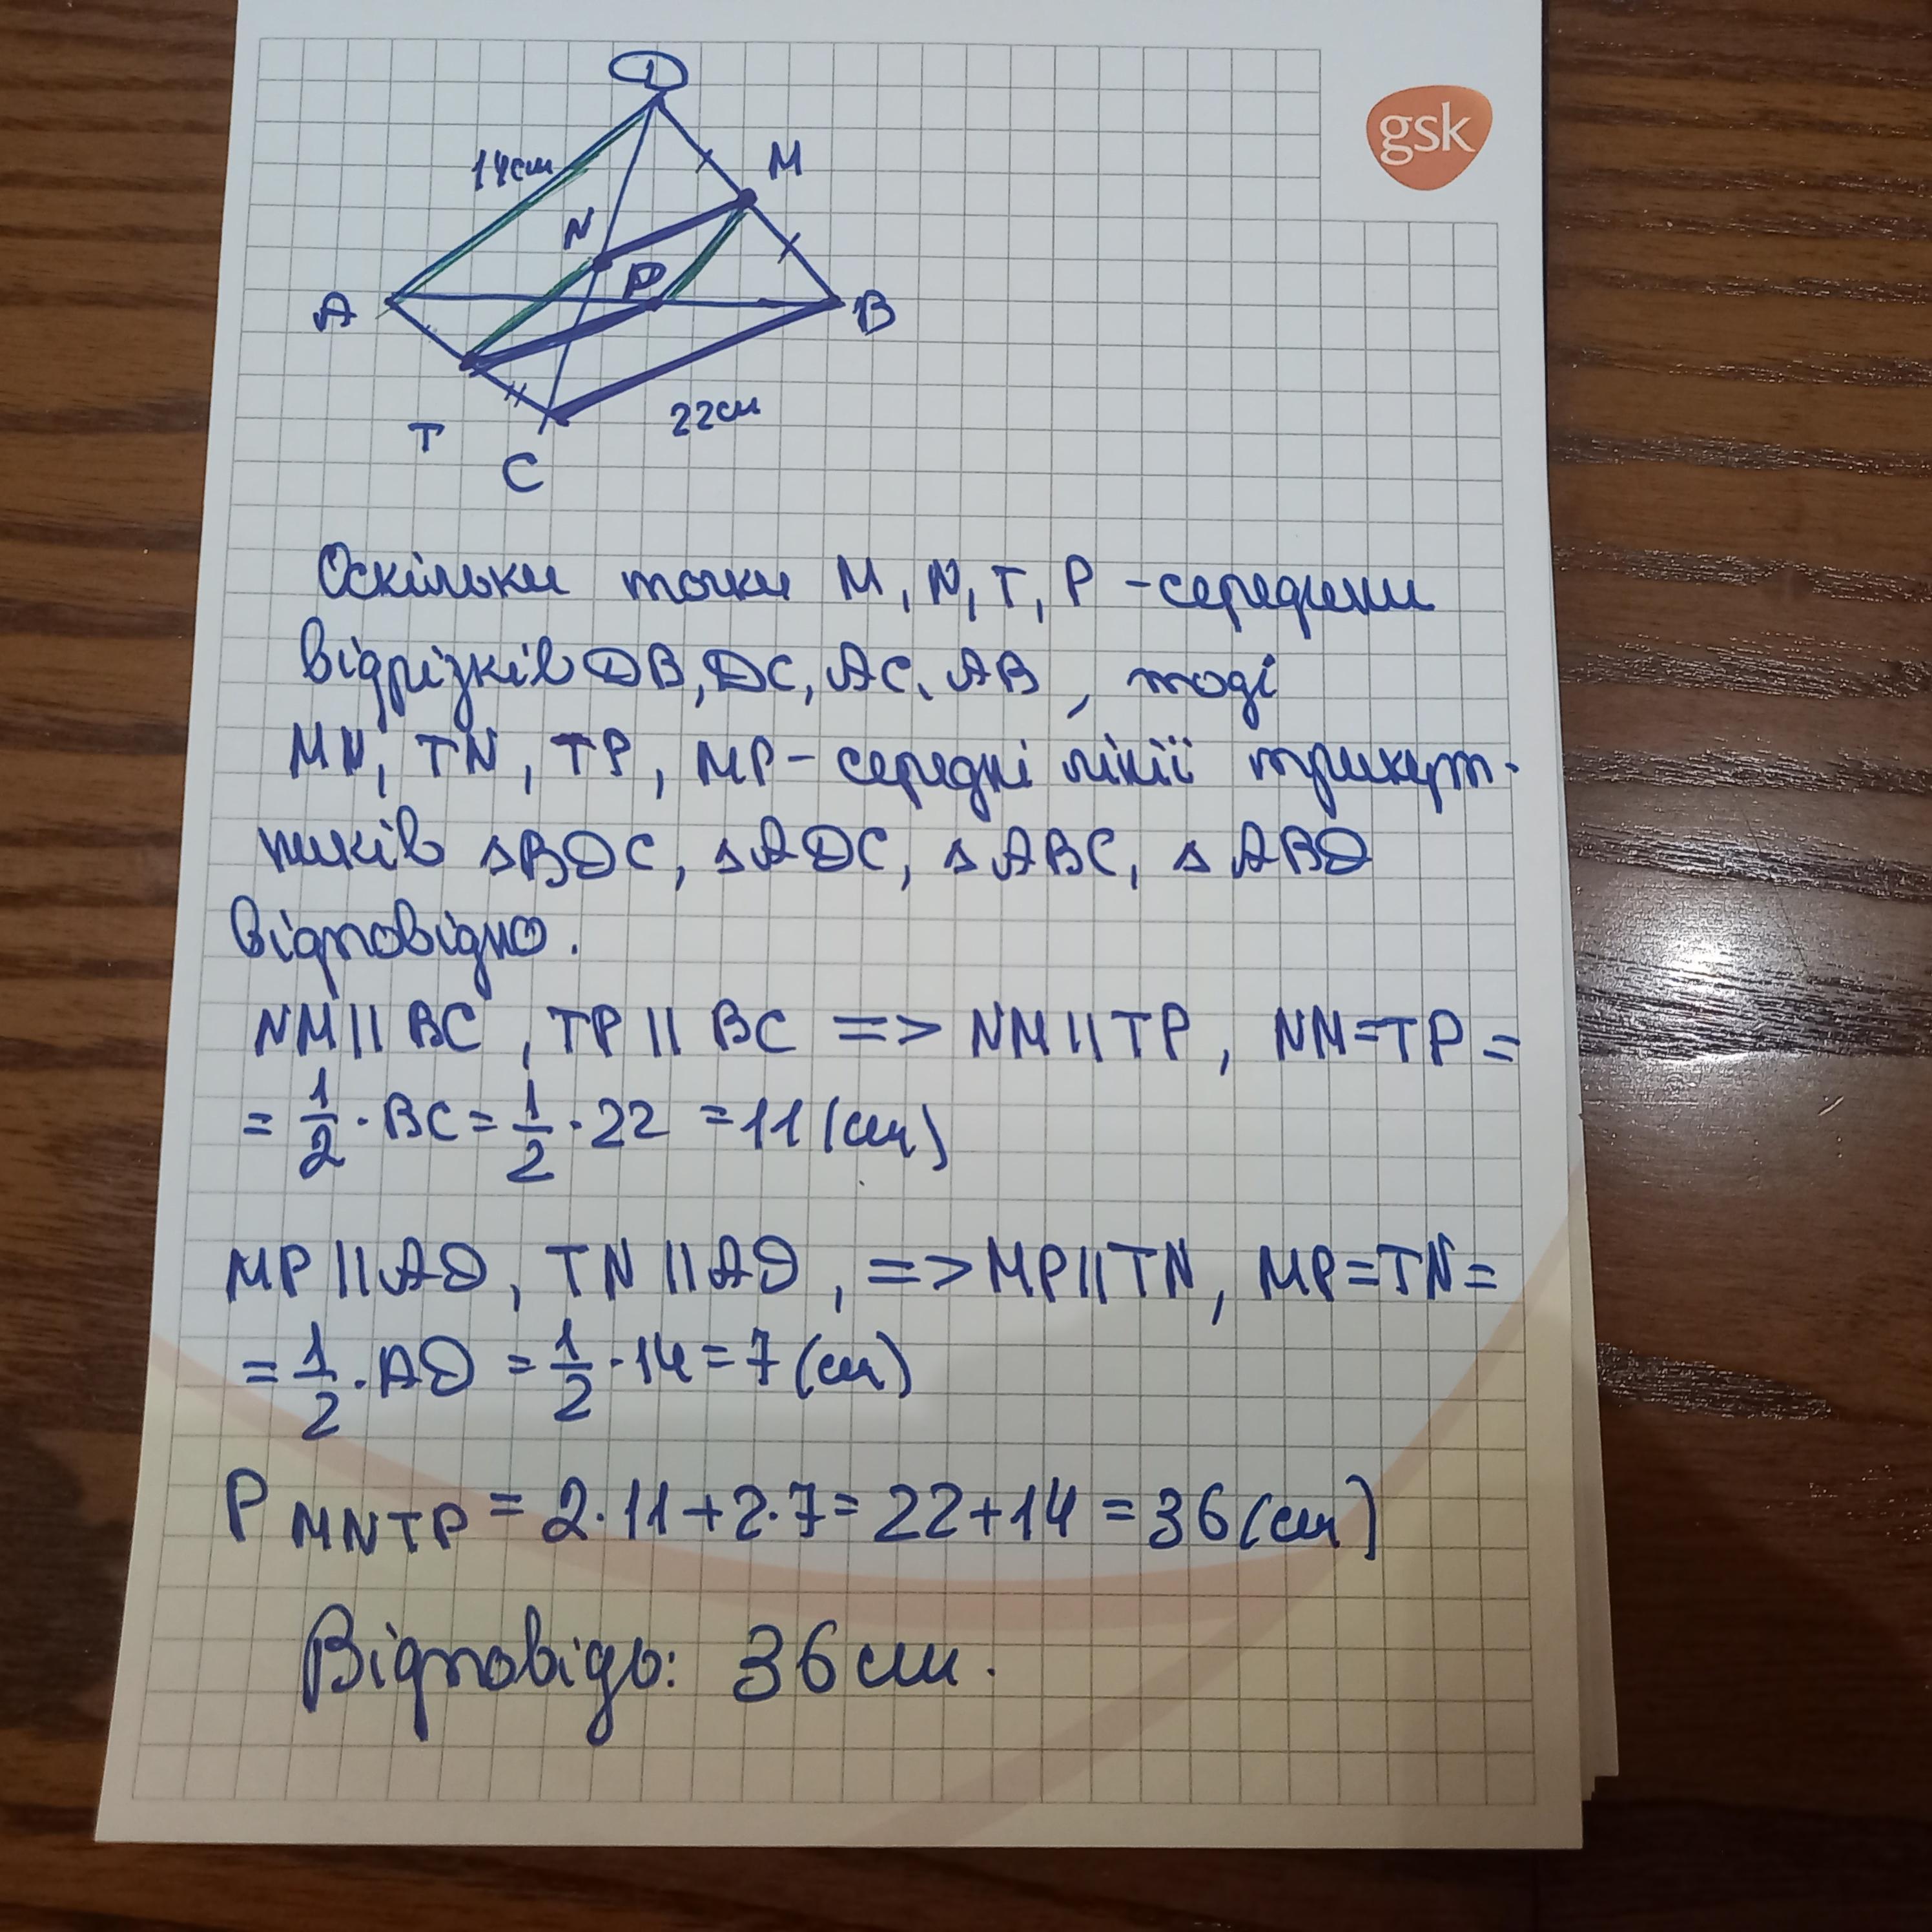 gsk
D
14см
M
N
P
A
B
22см
T
C
Оскільки точки M, N, T, P - середини
відрізків DB, DC, AC, AB, тоді
MN, TN, TP, MP - середні лінії трикут-
ників △BDC, △ADC, △ABC, △ABD
відповідно.
NM || BC, TP || BC => NM || TP, NM = TP =
= 1/2 · BC = 1/2 · 22 = 11 (см)
MP || AD, TN || AD, => MP || TN, MP = TN =
= 1/2 · AD = 1/2 · 14 = 7 (см)
P MNTP = 2 · 11 + 2 · 7 = 22 + 14 = 36 (см)
Відповідь: 36 см.